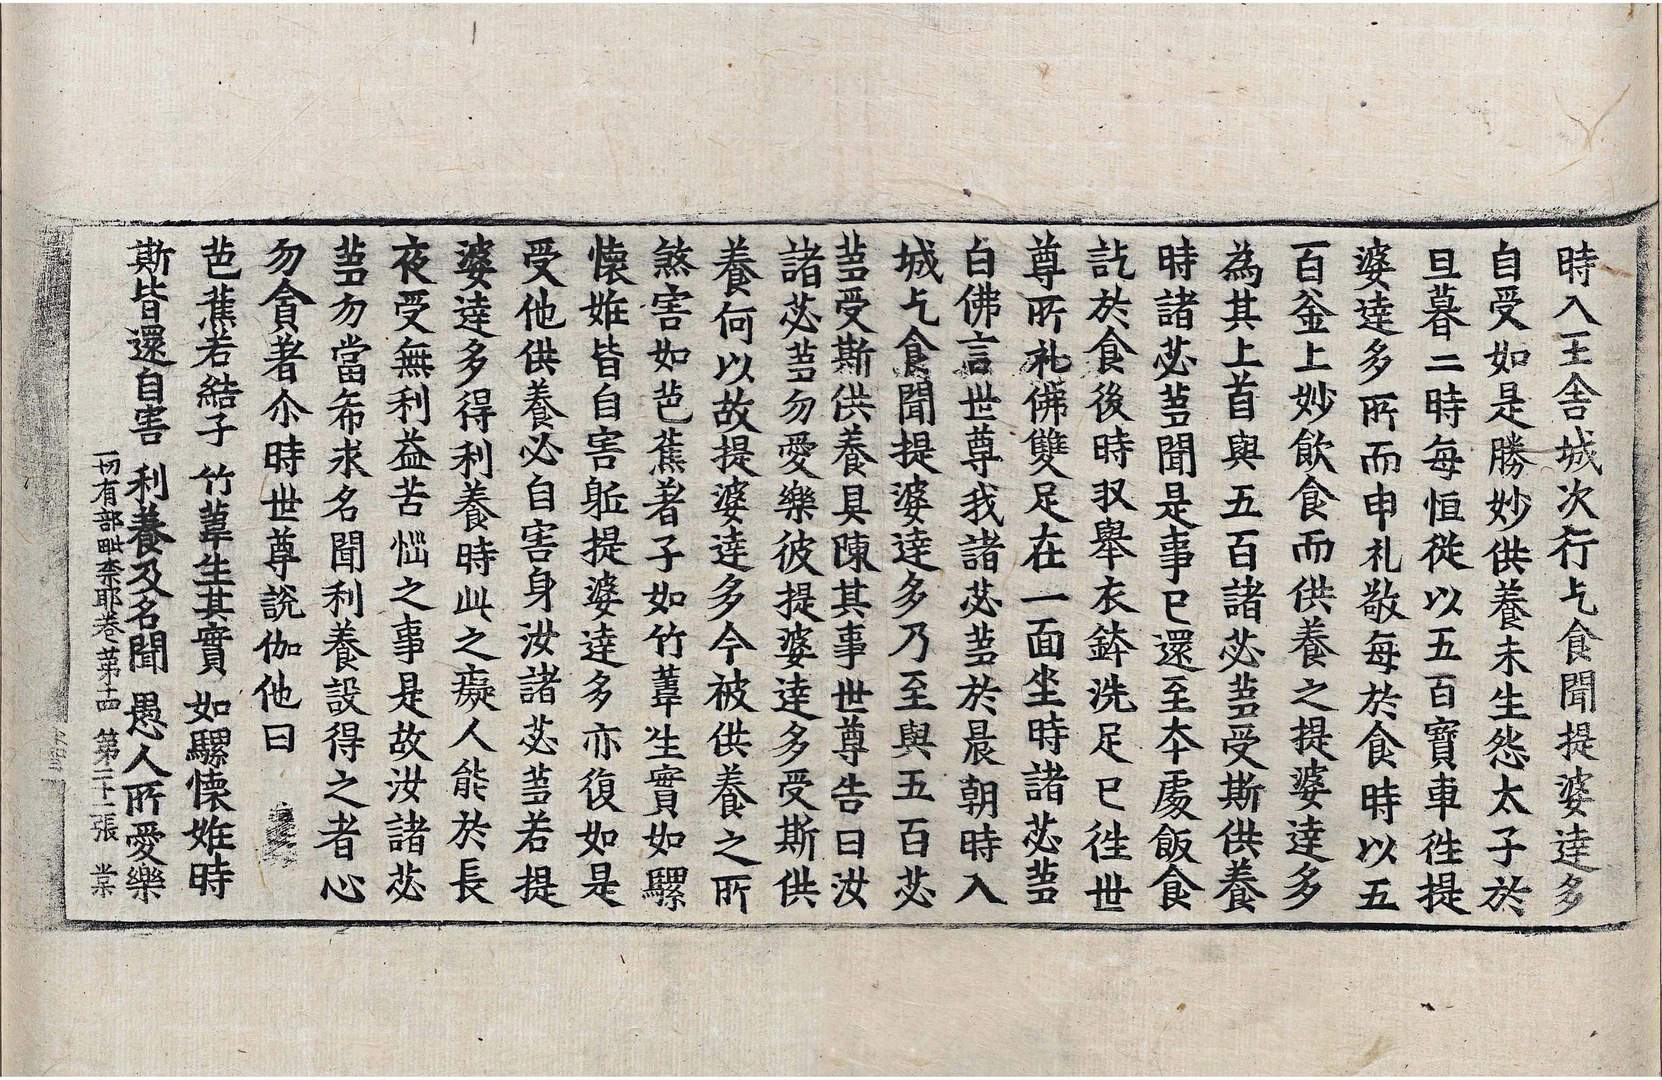 時入王舎城次行乞食聞提婆達多
自受如是勝妙供養未生怨太子於
旦暮二時每恒從以五百寶車徃提
婆達多所而申礼敬每於食時以五
百釜上妙飲食而供養之提婆達多
為其上首與五百諸苾蒭受斯供養
時諸苾蒭聞是事已還至本處飯食
訖於食後時収舉衣鉢洗足已徃世
尊所礼佛雙足在一面坐時諸苾蒭
白佛言世尊我諸苾蒭於晨朝時入
城乞食聞提婆達多乃至與五百苾
蒭受斯供養具陳其事世尊告曰汝
諸苾蒭勿愛樂彼提婆達多受斯供
養何以故提婆達多今被供養之所
煞害如芭蕉著子如竹葦生實如騾
懷姙皆自害軀提婆達多亦復如是
受他供養必自害身汝諸苾蒭若提
婆達多得利養時此之癡人能於長
夜受無利益苦惱之事是故汝諸苾
蒭勿當希求名聞利養設得之者心
勿貪著尒時世尊說伽他曰
芭蕉若結子 竹葦生其實 如騾懷姙時
斯皆還自害 利養及名聞 愚人所愛樂
一切有部毗奈耶卷第十四 第二十一張 棠